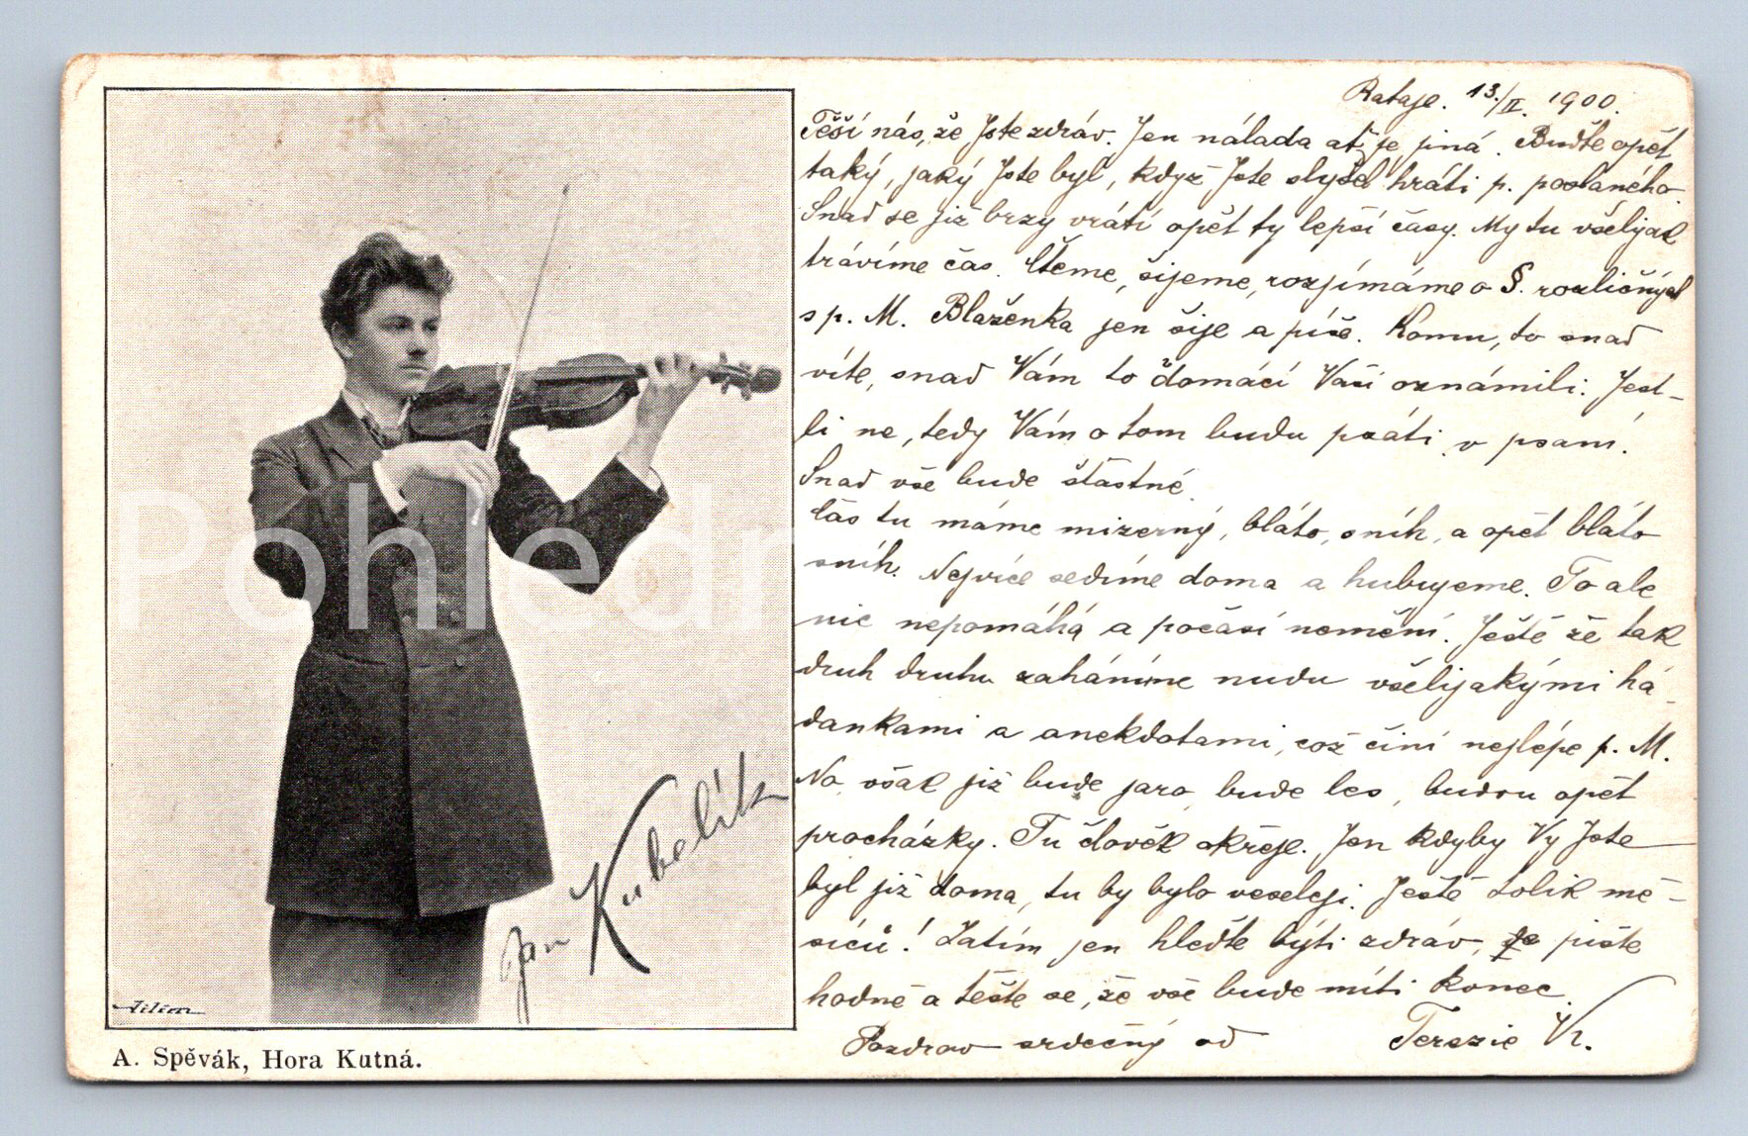 Rataje. 13./II. 1900.
Těší nás, že Jste zdráv. Jen nálada ať je jiná. Buďte opět
taký, jaký Jste byl, když Jste slyšel hráti p. poslaného.
Snad se již brzy vrátí opět ty lepší časy. My tu všelijak
trávíme čas. Čteme, šijeme, rozjímáme o §. rozličných
s p. M. Blaženka jen šije a píše. Komu, to snad
víte, snad Vám to domácí Vaši oznámili. Jest-
li ne, tedy Vám o tom budu psáti v psaní.
Snad vše bude šťastné.
Čas tu máme mizerný, bláto, sníh, a opět bláto
sníh. Nejvíce sedíme doma a hubujeme. To ale
nic nepomáhá a počasí nemění. Ještě že tak
druh druhu zaháníme nudu všelijakými há-
dankami a anekdotami, což činí nejlépe p. M.
No, však již bude jaro, bude les, budou opět
procházky. Tu člověk okřeje. Jen kdyby Vy Jste
byl již doma, tu by bylo veseleji. Ještě tolik mě-
síců! Zatím jen hleďte býti zdráv, pište
hodně a těšte se, že vše bude míti konec.
Pozdrav srdečný od Terezie K.
Jan Kubelík
Pohledn
A. Spěvák, Hora Kutná.